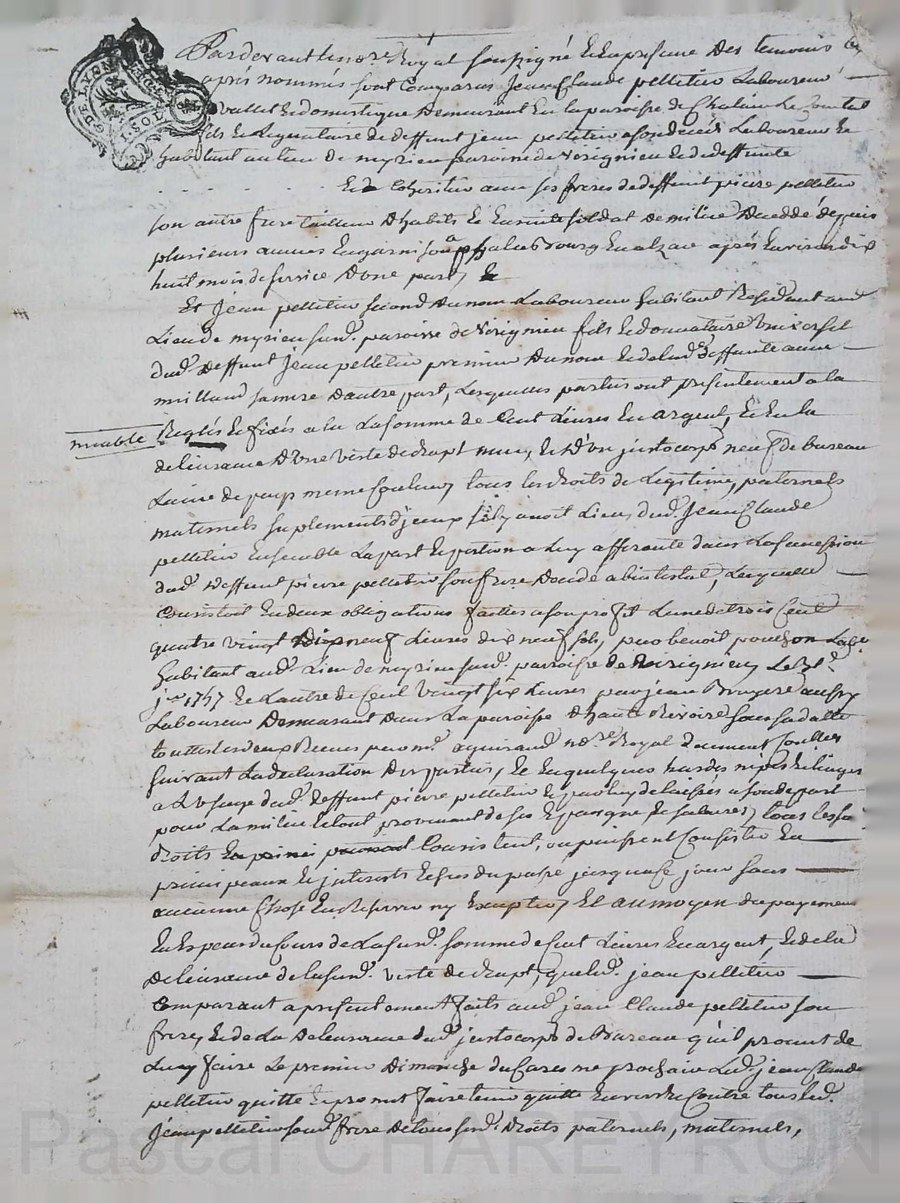 G. DE LYON
Pardevant le no.re Royal soussigné Et En presance Des temoins cy
apres nommés sont Comparus Jean Claude pelletier Laboureur
vallet Et domestique Demeurant En la paroisse de Chalain Le Comtal
fils Et Legataire de deffunt jean pelletier a son decés Laboureur Et
habitant au lieu de myrieu paroisse de Virignieu Et de deffunte
. . . . . Et Coheritier avec ses freres de deffunt pierre pelletier
son autre frere tailleur d'habits Et Ensuite soldat de milice decedé depuis
plusieurs années En garnison a phalesbourg En alzace après Environ dix
huit mois de service D'une part, Et
Et Jean pelletier second du nom Laboureur habitant Residant aud.
Lieu de myrieu susd. paroisse de Virignieu fils Et donnataire universel
dud. deffunt Jean pelletier premier du nom Et de lad. deffunte anne
milland sa mere D'autre part, Lesquelles parties ont presentement a la
meuble Reglés Et fixés a la La somme de Cent Livres En argent, Et En la
delivrance D'une veste de drapt meuy, Et D'un justocorps neuf de bureau
Laine de pays meme Couleur, tous les droits de Legitime, paternels
maternels suplements d'jceux s'il y avoit Lieu, dud. Jean Claude
pelletier Ensemble La part Et portion a Luy afferante dans La succession
dud. deffunt pierre pelletier son frere decedé abintestat, Laquelle
Consistat En deux obligations faittes a son profit L'une de trois Cent
quatre vingt Dixneuf Livres dix neuf sols, par benoit ponchon Lab.r
habitant aud. Lieu de myrieu susd. paroisse de Virignieu, Le
j.er 1757 Et L'autre de Cent Vingt six Livres par jean Bruyere aussy
Laboureur Demeurant Dans La paroisse d'haute Rivoire sous sa datte
touttes les deux Recues par m.e aguiraud no.re Royal Duement Controllées
suivant La declaration Des parties, Et En quelques hardes nipes Et linges
a L'usage dud. deffunt pierre pelletier Et par luy delaissés a son depart
pour La milice Le tout provenant de ses Epargnes Et salaires, tous lesd.
droits Consistent, ou puissent Consister En
principeaux Et jnterets Echus du passé jusqu'a ce jour sans
aucunne Chose En Reserver ny Excepter, Et au moyen du payement
En Especes du Cours de La susd. somme de Cent Livres En argent, Et de la
delivrance de la susd. veste de drapt, que led. jean pelletier
Comparant a presentement faits aud. jean Claude pelletier son
frere, Et de La delivrance dud. justocorps de Bureau qu'il promet de
Luy faire Le premier Dimanche de Caresme prochain Led. jean Claude
pelletier quitte Et promet faire tenir quitte Envers Et Contre tous Led.
Jean pelletier sond. frere De tous susd. Droits paternels, maternels,
Pascal CHAREYRON